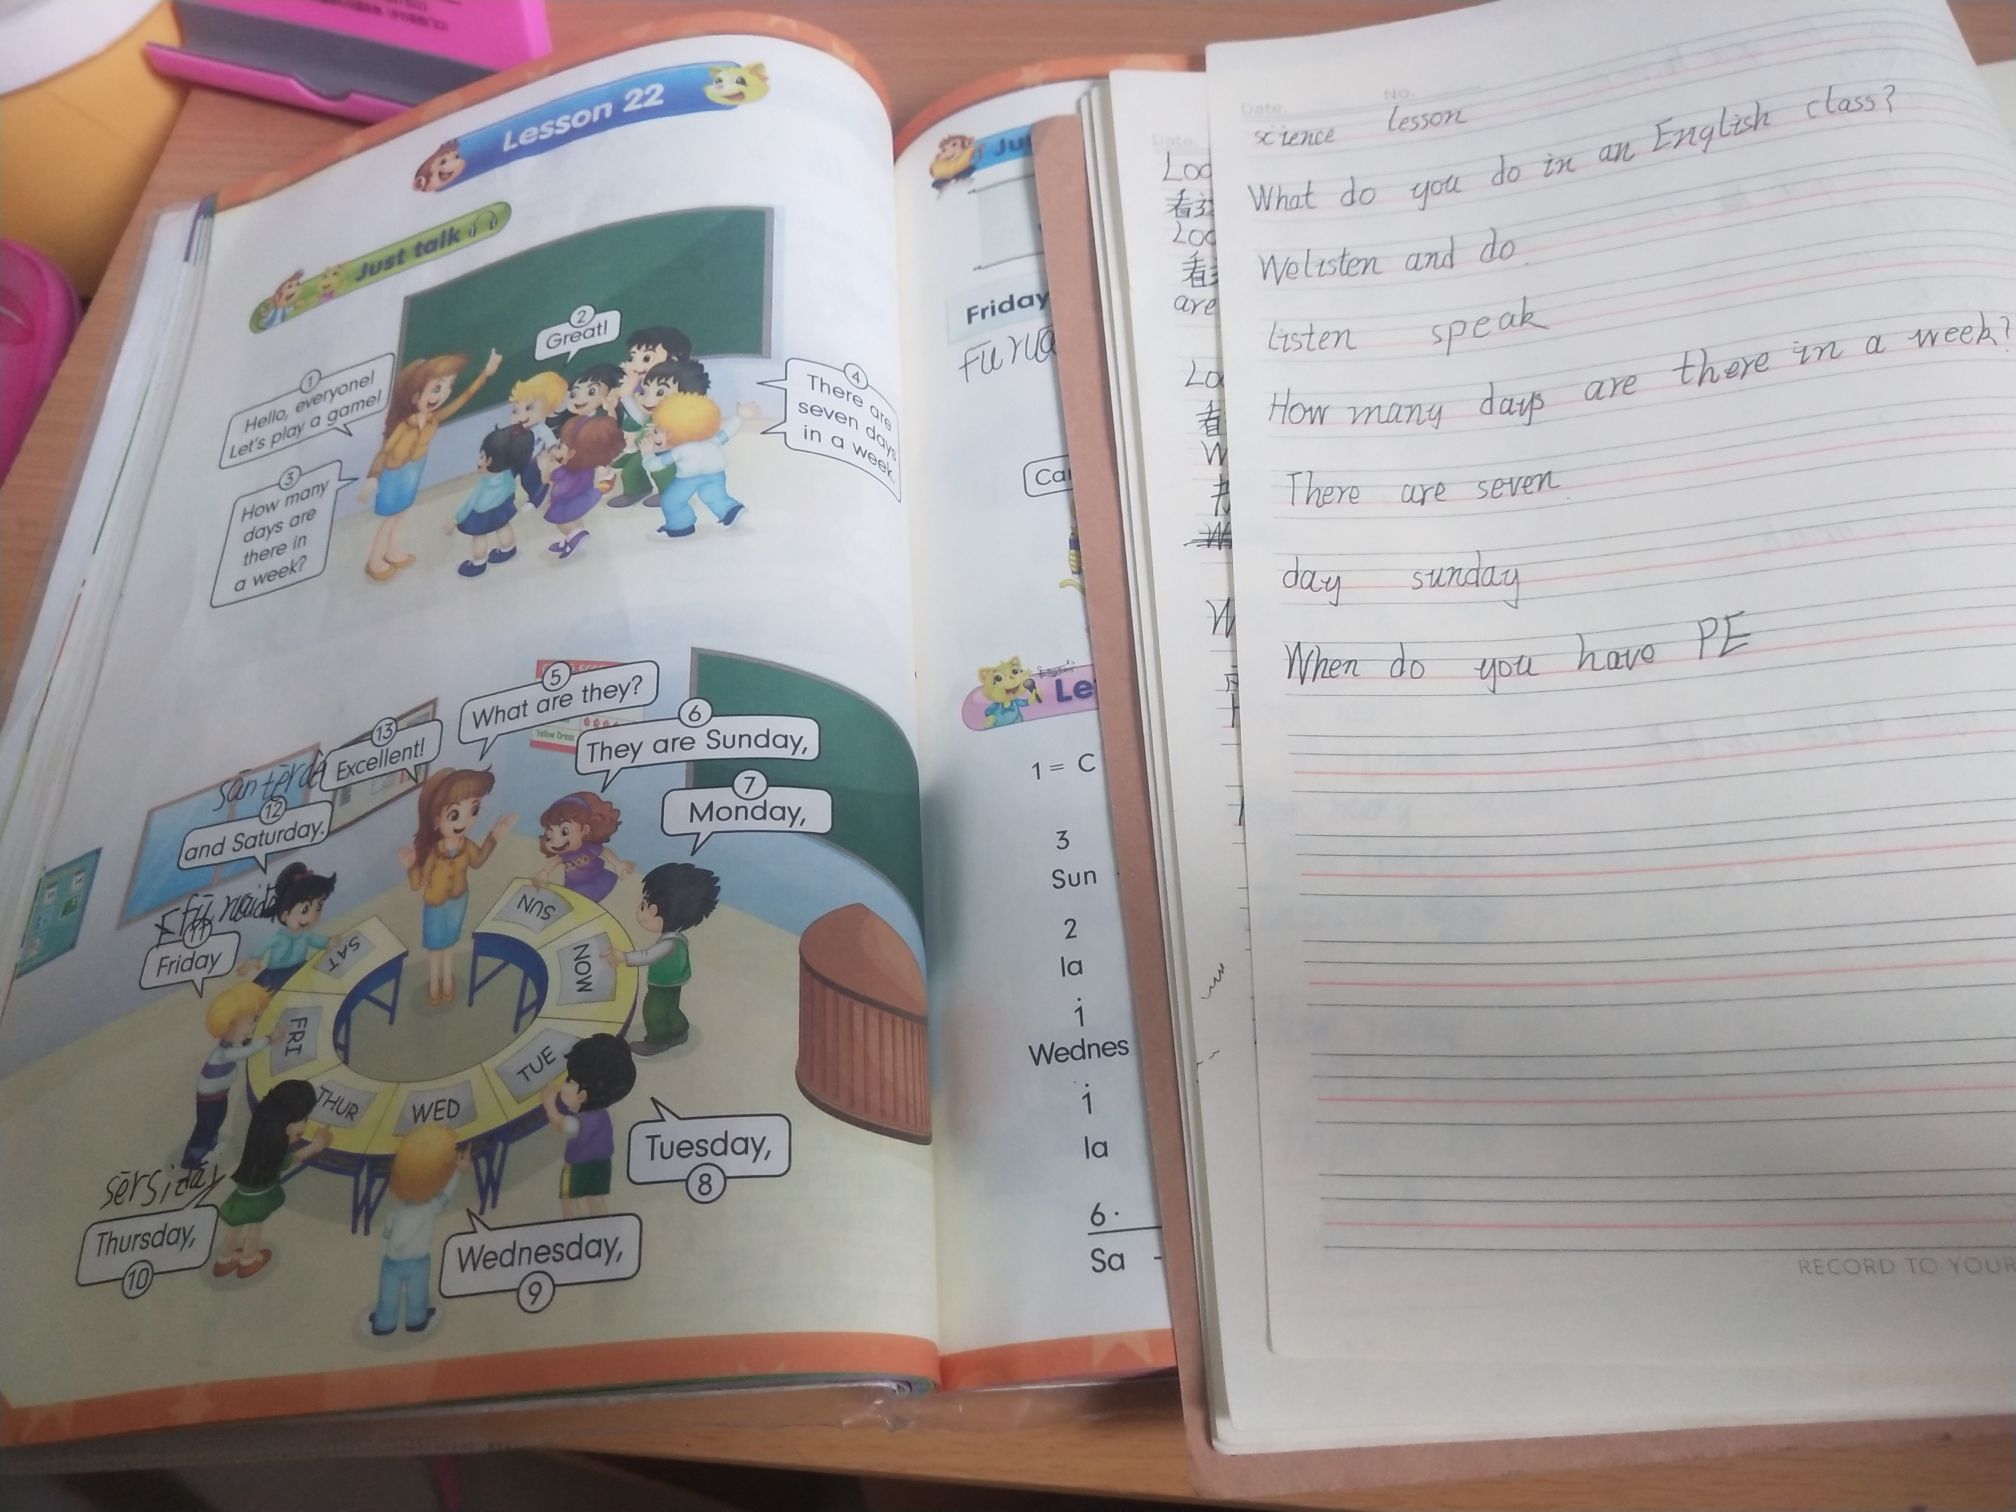 Lesson 22
Just talk
1
Hello, everyone!
Let's play a game!
2
Great!
3
How many
days are
there in
a week?
4
There are
seven days
in a week.
5
What are they?
6
They are Sunday,
7
Monday,
Tuesday,
8
Wednesday,
9
sērsidāi
Thursday,
10
11
Friday
sāntērdē
12
and Saturday.
13
Excellent!
SUN
MON
TUE
WED
THUR
FRI
SAT
Friday
Ca
Le
1 = C
3
Sun
2
la
i
Wednes
i
la
6·
Sa -
Date.
Loo
Loo
are
Date.
No.
science lesson
What do you do in an English class?
We listen and do.
listen speak
How many days are there in a week?
There are seven.
day sunday
When do you have PE
RECORD TO YOUR